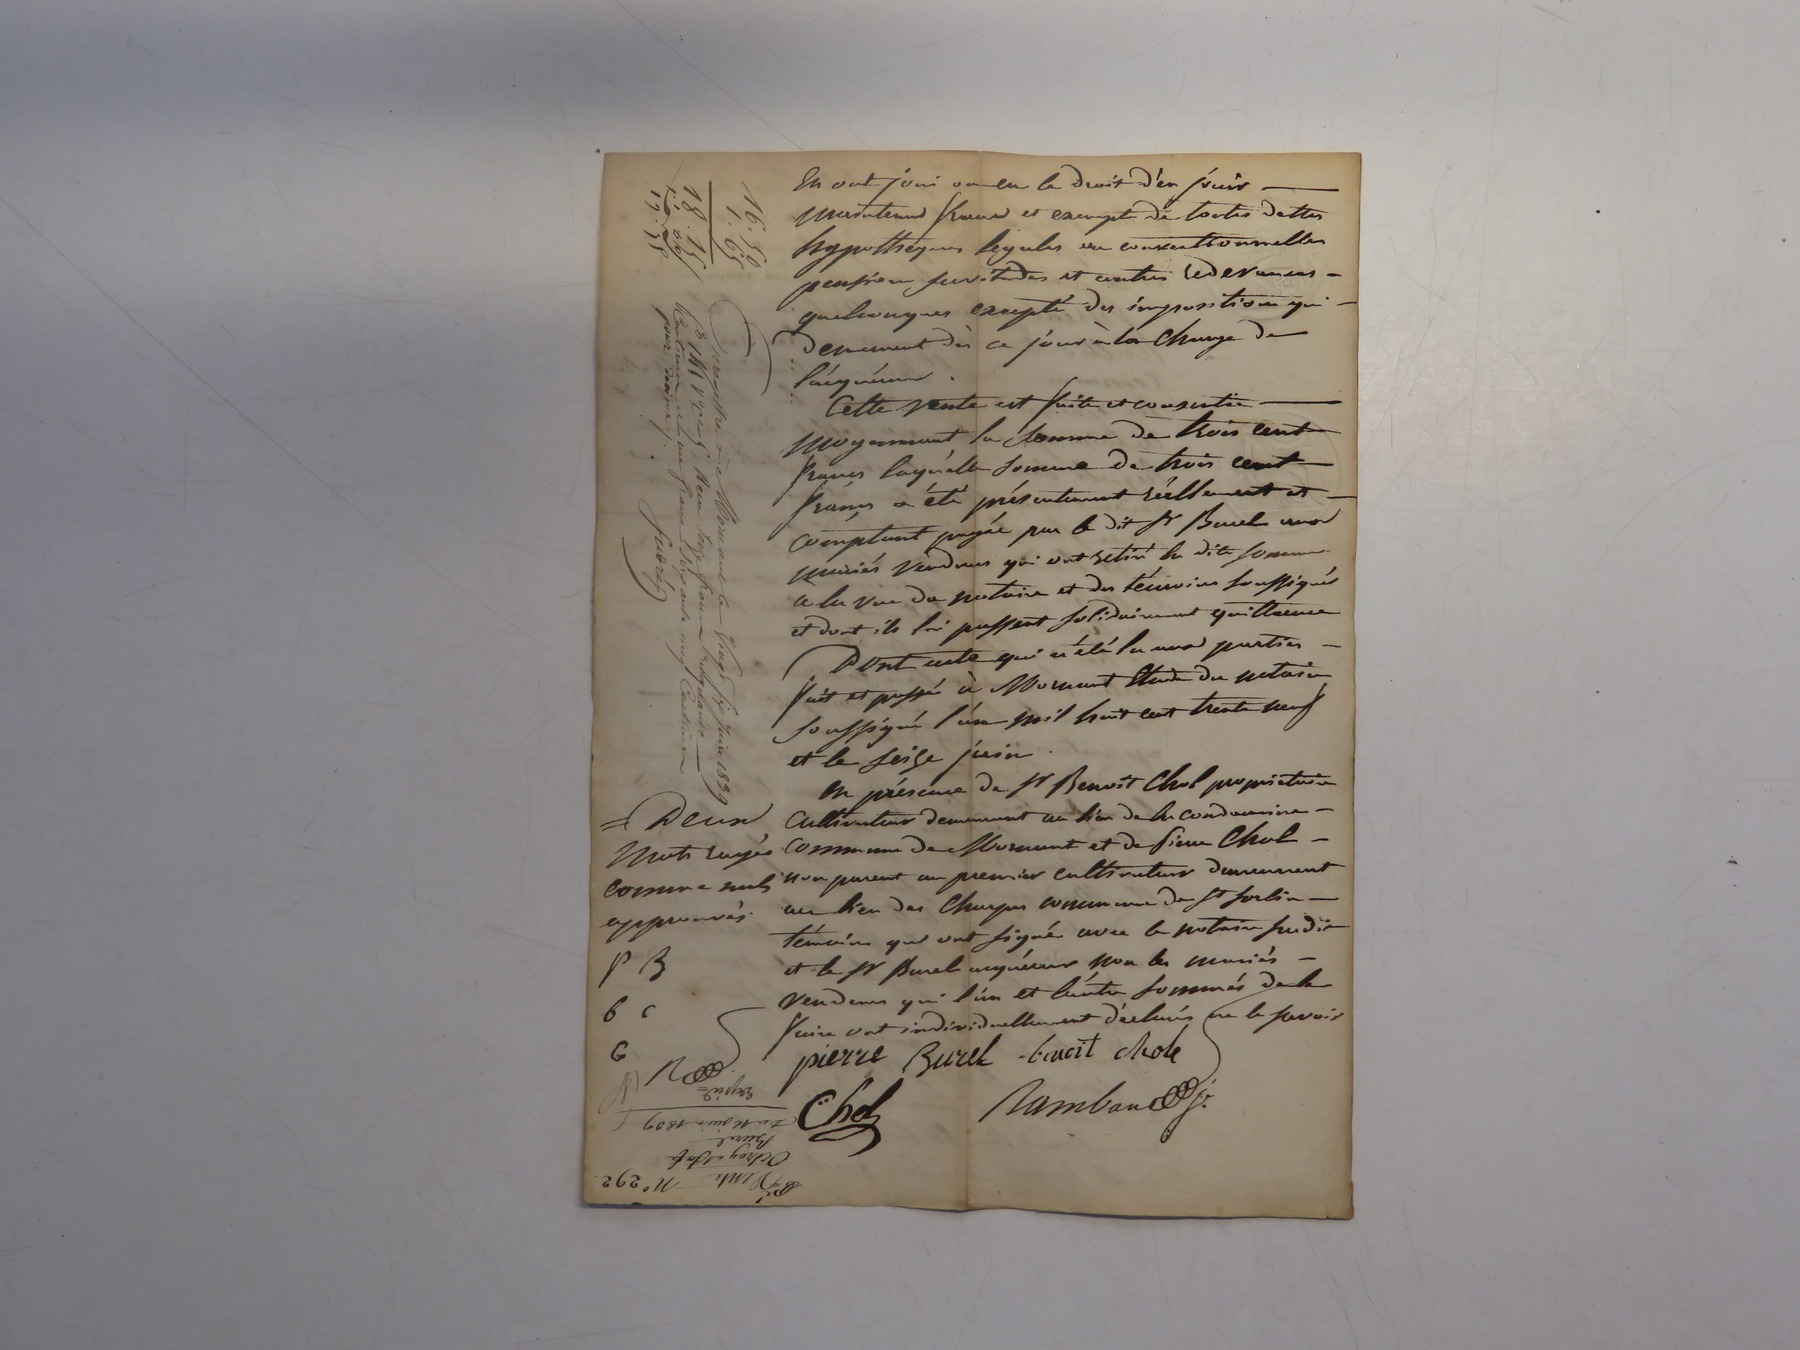 En ont joui ou eu le droit d'en jouir
maintenus francs et exempts de toutes dettes
hypothèques légales ou conventionnelles
pensions servitudes et autres redevances
quelconques excepté des impositions qui
demeurent dès ce jour à la charge de
l'acquéreur.
Cette vente est faite et consentie
moyennant la somme de trois cent
francs laquelle somme de trois cent
francs a été présentement réellement et
comptant payée par le dit Sr Burel aux
mariés vendeurs qui ont retiré la dite somme
a la vue du notaire et des témoins soussignés
et dont ils lui passent solidairement quittance
Dont acte qui a été lu aux parties
fait et passé à Mornant Etude du notaire
soussigné l'an mil huit cent trente neuf
et le seize juin.
En présence de Sr Benoît Chol propriétaire
cultivateur demeurant au lieu de la
commune de Mornant et de Pierre Chol
non parent au premier cultivateur demeurant
au lieu des commune de St Sorlin
témoins qui ont signé avec le notaire susdit
et le Sr Burel acquéreur non les mariés
vendeurs qui l'un et l'autre sommés de le
faire ont individuellement déclarés ne le savoir
pierre Burel benoit chole
Chol Rambaud Jr
= Deux
mots rayés
comme nuls
approuvés
P B
b c
C
R
16. 50
1. 65
18. 15
19. 75
Enregistré à Mornant le vingt six juin 1839
pour dixième.
No 292
Vente
Burel
du 16 juin 1839